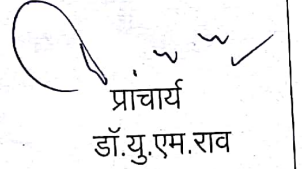 प्राचार्य
डॉ.यु.एम.राव